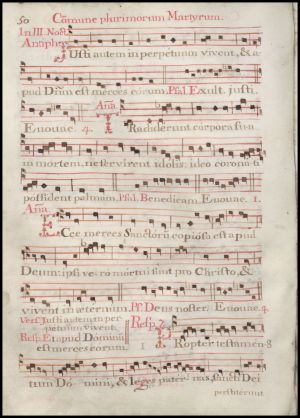 50 Cōmune plurimorum Martyrum.
In III Noct.
Antipho.
Usti autem in perpetuum vivent, & a-
pud Dñm est merces eorum. Psal. Exult. justi.
Aña.
Euouae. 4. Radiderunt corpora su-a
in mortem, ne servirent idolis: ideo corona-ti
possident palmam. Psal. Benedicam. Euouae. 1.
Aña.
Cce merces Sanctorū copiosa est apud
Deum: ipsi ve-rò mortui sunt pro Christo, &
vivent in æternum. Ps. Deus noster. Euouae. 4
Vers. Justi autem in per-
petuum vivent.
Resp. Et apud Dominū
est merces eorum.
Resp. 7.
Ropter testamen-
tum Do-mini, & leges pater-nas, Sancti Dei
perstiterunt